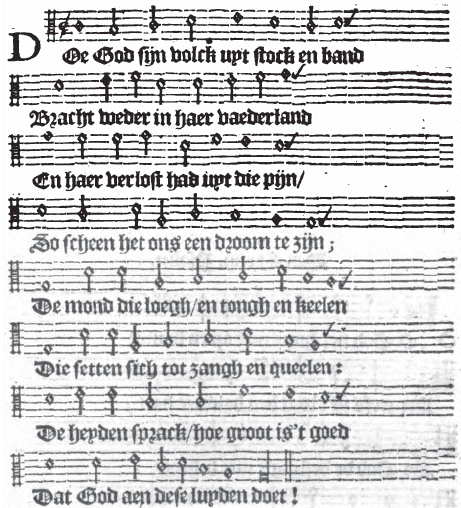 DOe God sijn volck uyt stock en band
Bracht weder in haer vaederland
En haer verlost had uyt die pijn/
So scheen het ons een droom te zijn;
De mond die loegh/en tongh en keelen
Die setten sich tot zangh en queelen:
De heyden sprack/hoe groot is't goed
Dat God aen dese luyden doet!